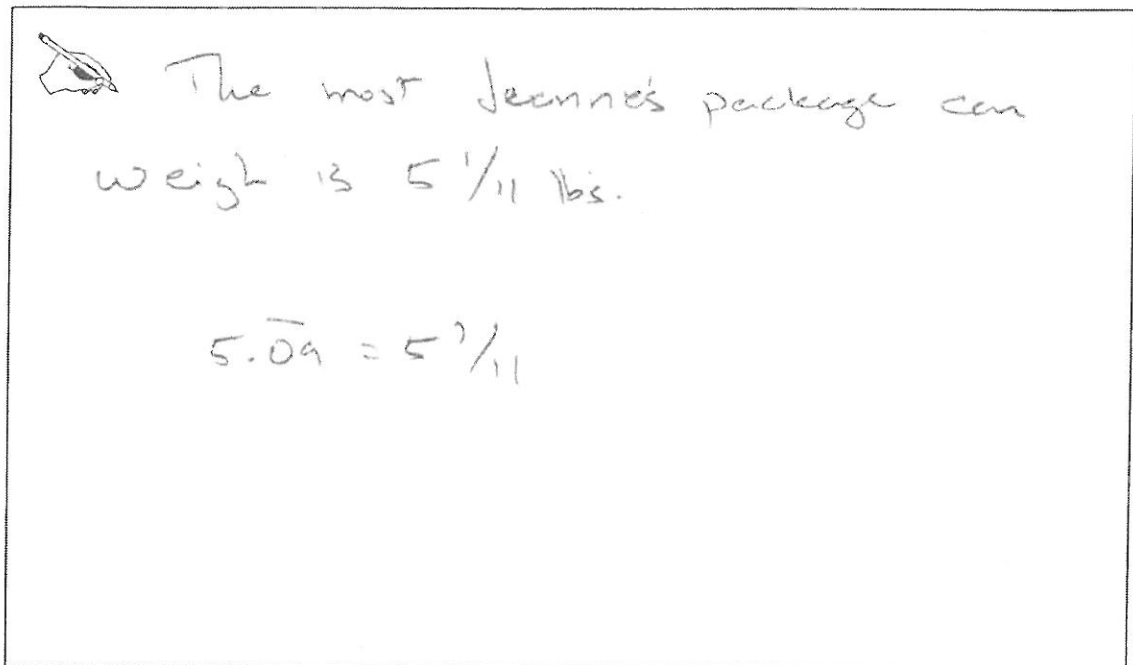 The most Jeanne's package can
weigh is 5 1/11 lbs.
5.0̅9̅ = 5 1/11